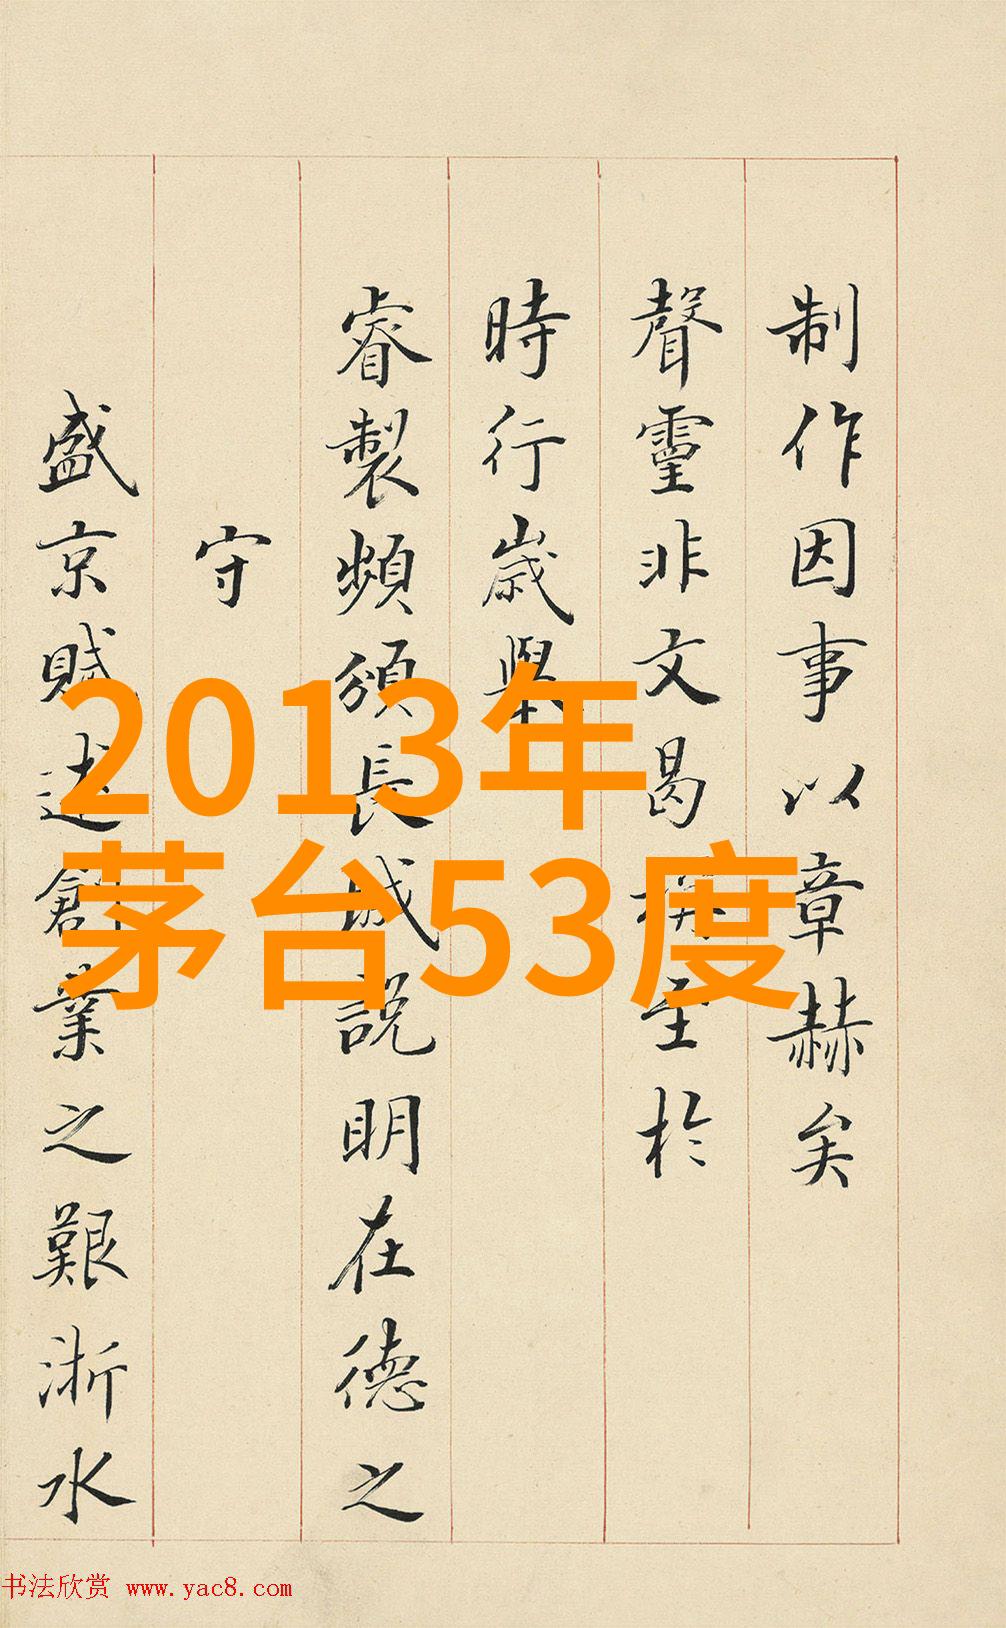 制作因事以章赫矣
聲靈非文曷稱至於
時行歲舉
睿製頻頒長城說明在德之
守
盛京賦述創業之艱浙水
2013年
茅台53度
书法欣赏 www.yac8.com